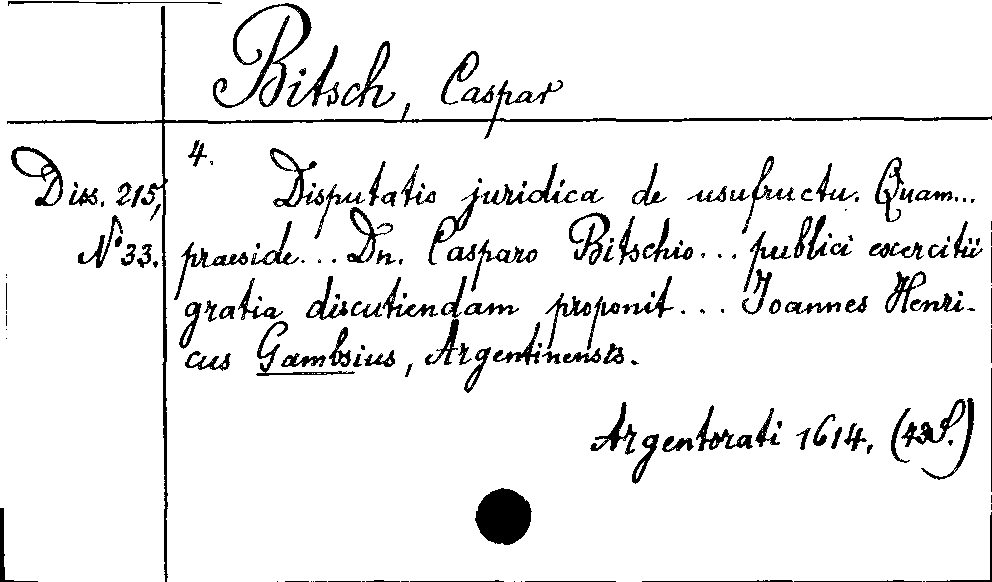 Bitsch, Caspar
4.
Diss. 215,
No 33.
Disputatio juridica de usufructu. Quam...
praeside... Dn. Casparo Bitschio... publici exercitii
gratia discutiendam proponit... Joannes Henri-
cus Gambsius, Argentinensis.
Argentorati 1614. (43 S.)